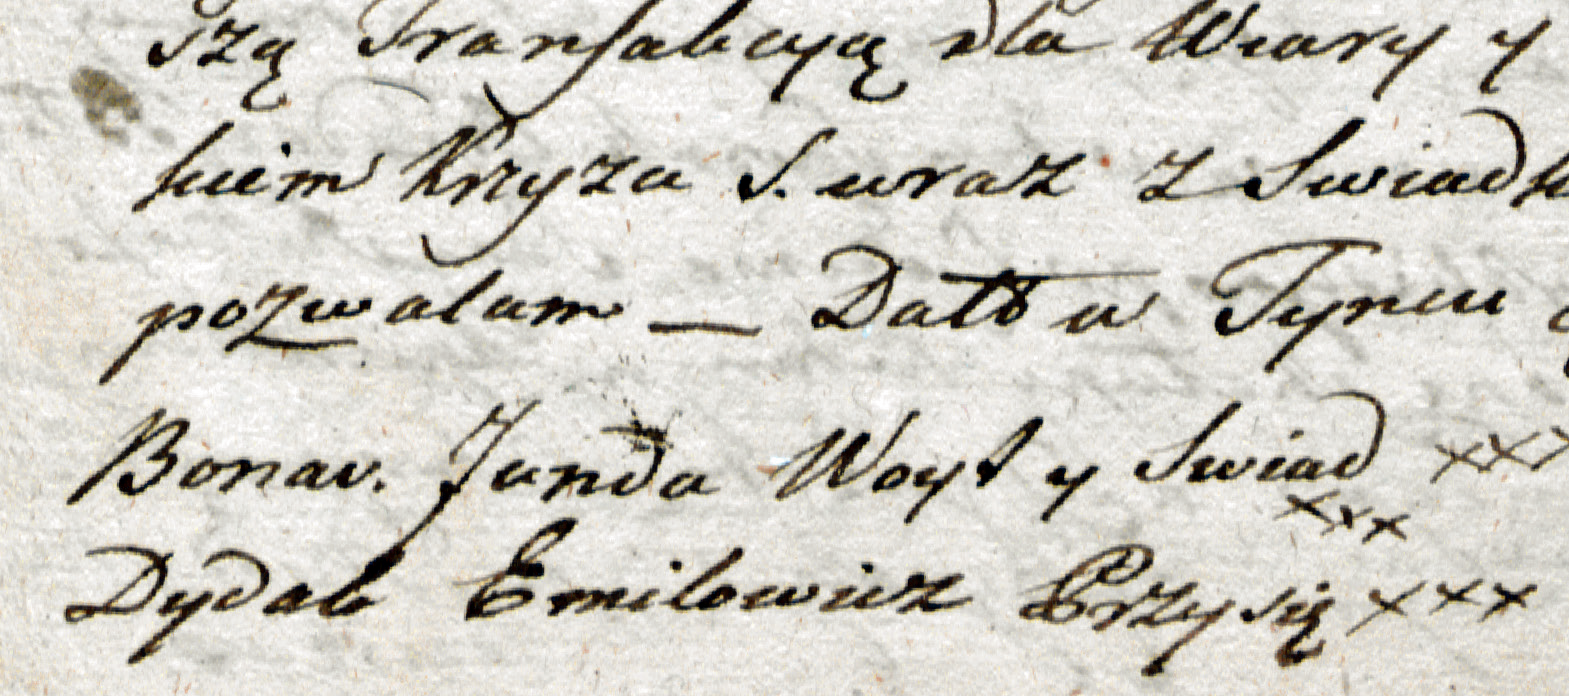 szą Transakcyą dla Wiary y
kiem Krzyza S. wraz z Swiadk
pozwalam — Datt w Tyncu
Bonav. Junda Woyt y Swiad xxx
xxx
Dydak Emilowicz Przysię xxx